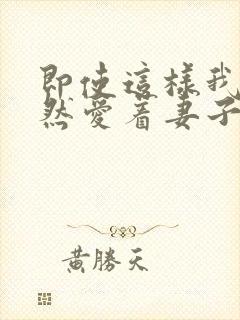 即使這樣我
然愛着妻子
黃勝天